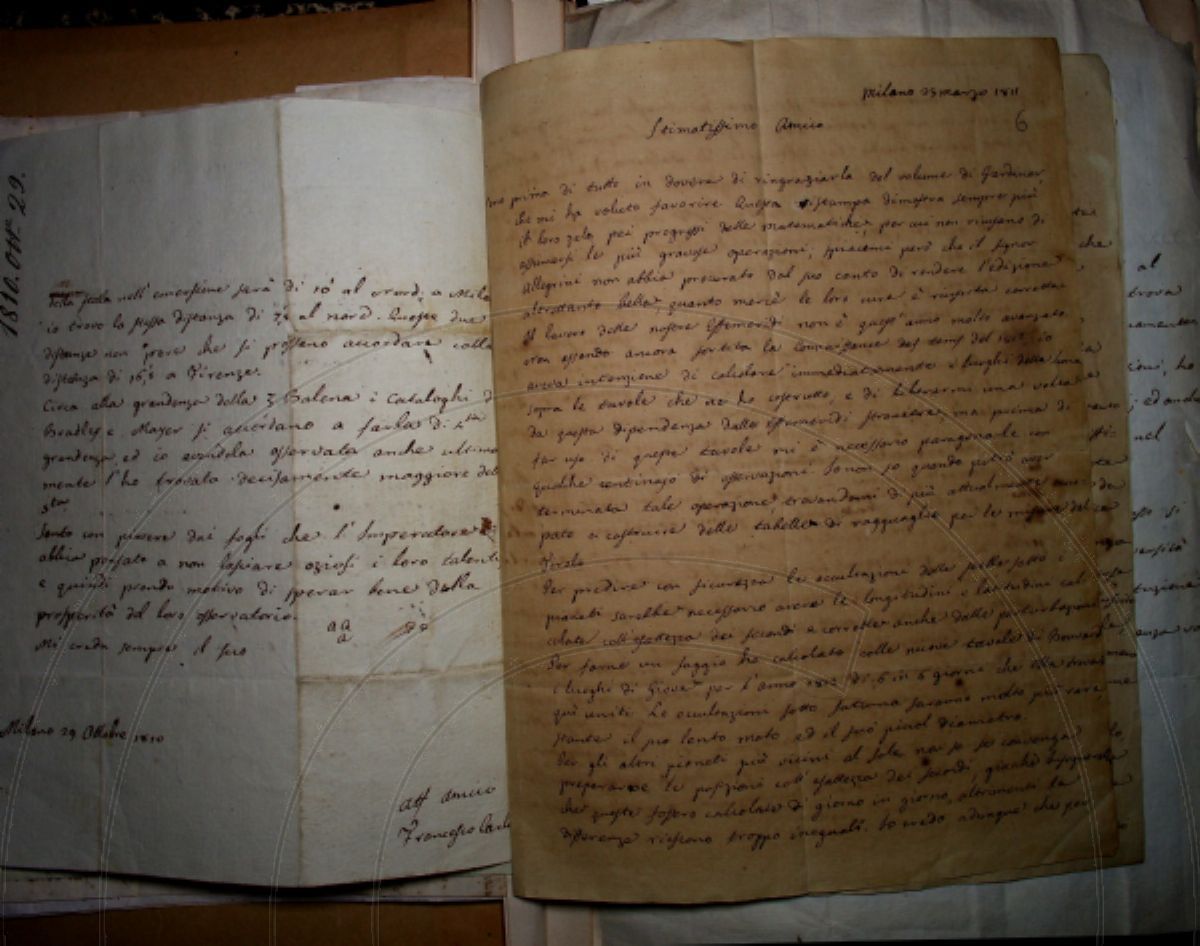 1810. Ott.e 29.
della sola nell'emersione sarà di 10' al nord; a Mila
io trovo la stessa distanza di al nord. Queste due
distanze non pare che si possano accordare colla
distanza di 16,'8 a Firenze.
Circa alla grandezza della ξ Balena i Cataloghi d
Bradley e Mayer si accordano a farla di 4ta
grandezza ed io avendola osservata anche ultima
mente l'ho trovata decisamente maggiore del
5ta
Sento con piacere dai fogli che l'Imperatore
abbia pensato a non lasciare oziosi i loro talenti
e quindi prendo motivo di sperar bene della
prosperità del loro osservatorio.
Mi creda sempre il suo
Milano 29 Ottobre 1810
aff amico
Francesco Carli
Milano 25 marzo 1811
6
Stimatissimo Amico
prima di tutto in dovere di ringraziarla del volume di Gardiner
che mi ha voluto favorire. Questa ristampa dimostra sempre più
il loro zelo pei progressi delle matematiche, per cui non ricusano di
assumersi le più gravose operazioni; spiacemi però che il signor
Allegrini non abbia procurato dal suo canto di rendere l'edizione
altrettanto bella, quanto mercè le loro cure è riuscita corretta.
Il lavoro delle nostre Effemeridi non è quest'anno molto avanzato
non essendo ancora sortita la Connaissance des tems del 1812. io
aveva intenzione di calcolare immediatamente i luoghi della luna
sopra le tavole che ne ho costrutto, e di liberarmi una volta
da questa dipendenza dalle Effemeridi straniere, ma prima di
far uso di queste tavole mi è necessario paragonarle con
qualche centinajo di osservazioni. Io non so quando potrò aver
terminata tale operazione, trovandomi di più attualmente occu-
pato a costruire delle tabelle di ragguaglio per le misure del
Tirolo
Per predire con sicurezza le occultazioni delle stelle sotto i
pianeti sarebbe necessario avere le longitudini e latitudini cal
colate coll'esattezza dei secondi e corrette anche dalle perturbazioni
Per farne un saggio ho calcolato colle nuove tavole di Bouvard
i luoghi di Giove per l'anno 1812 di 6 in 6 giorni che Ella troverà
quì uniti. Le occultazioni sotto Saturno saranno molto più rare
stante il suo lento moto, ed il suo picciol diametro.
Per gli altri pianeti più vicini al sole non so se convenga
prepararne le posizioni coll'esattezza dei secondi, giacchè bisognerebbe
che queste fossero calcolate di giorno in giorno, altrimenti le
differenze riescono troppo ineguali. Io credo adunque che per